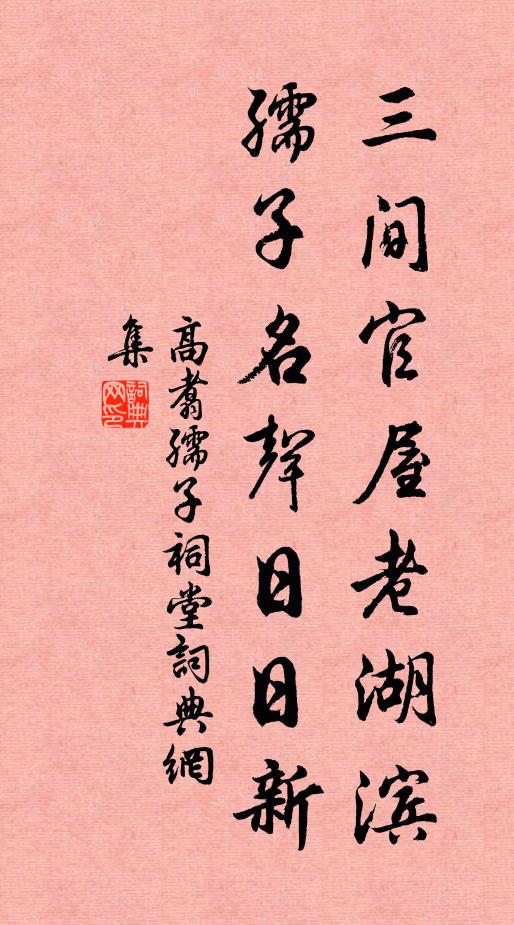 三间官屋老湖滨
孺子名聲日日新
高翥孺子祠堂詞典網
集
詞典
网印